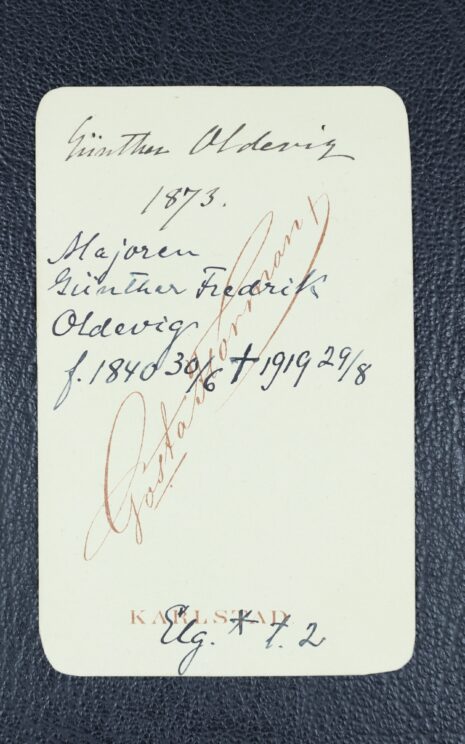 Günther Oldevig
1873.
Majoren
Günther Fredrik
Oldevig
f. 1840 30/6 † 1919 29/8
Gösta Florman
KARLSTAD
Elg. * t. 2